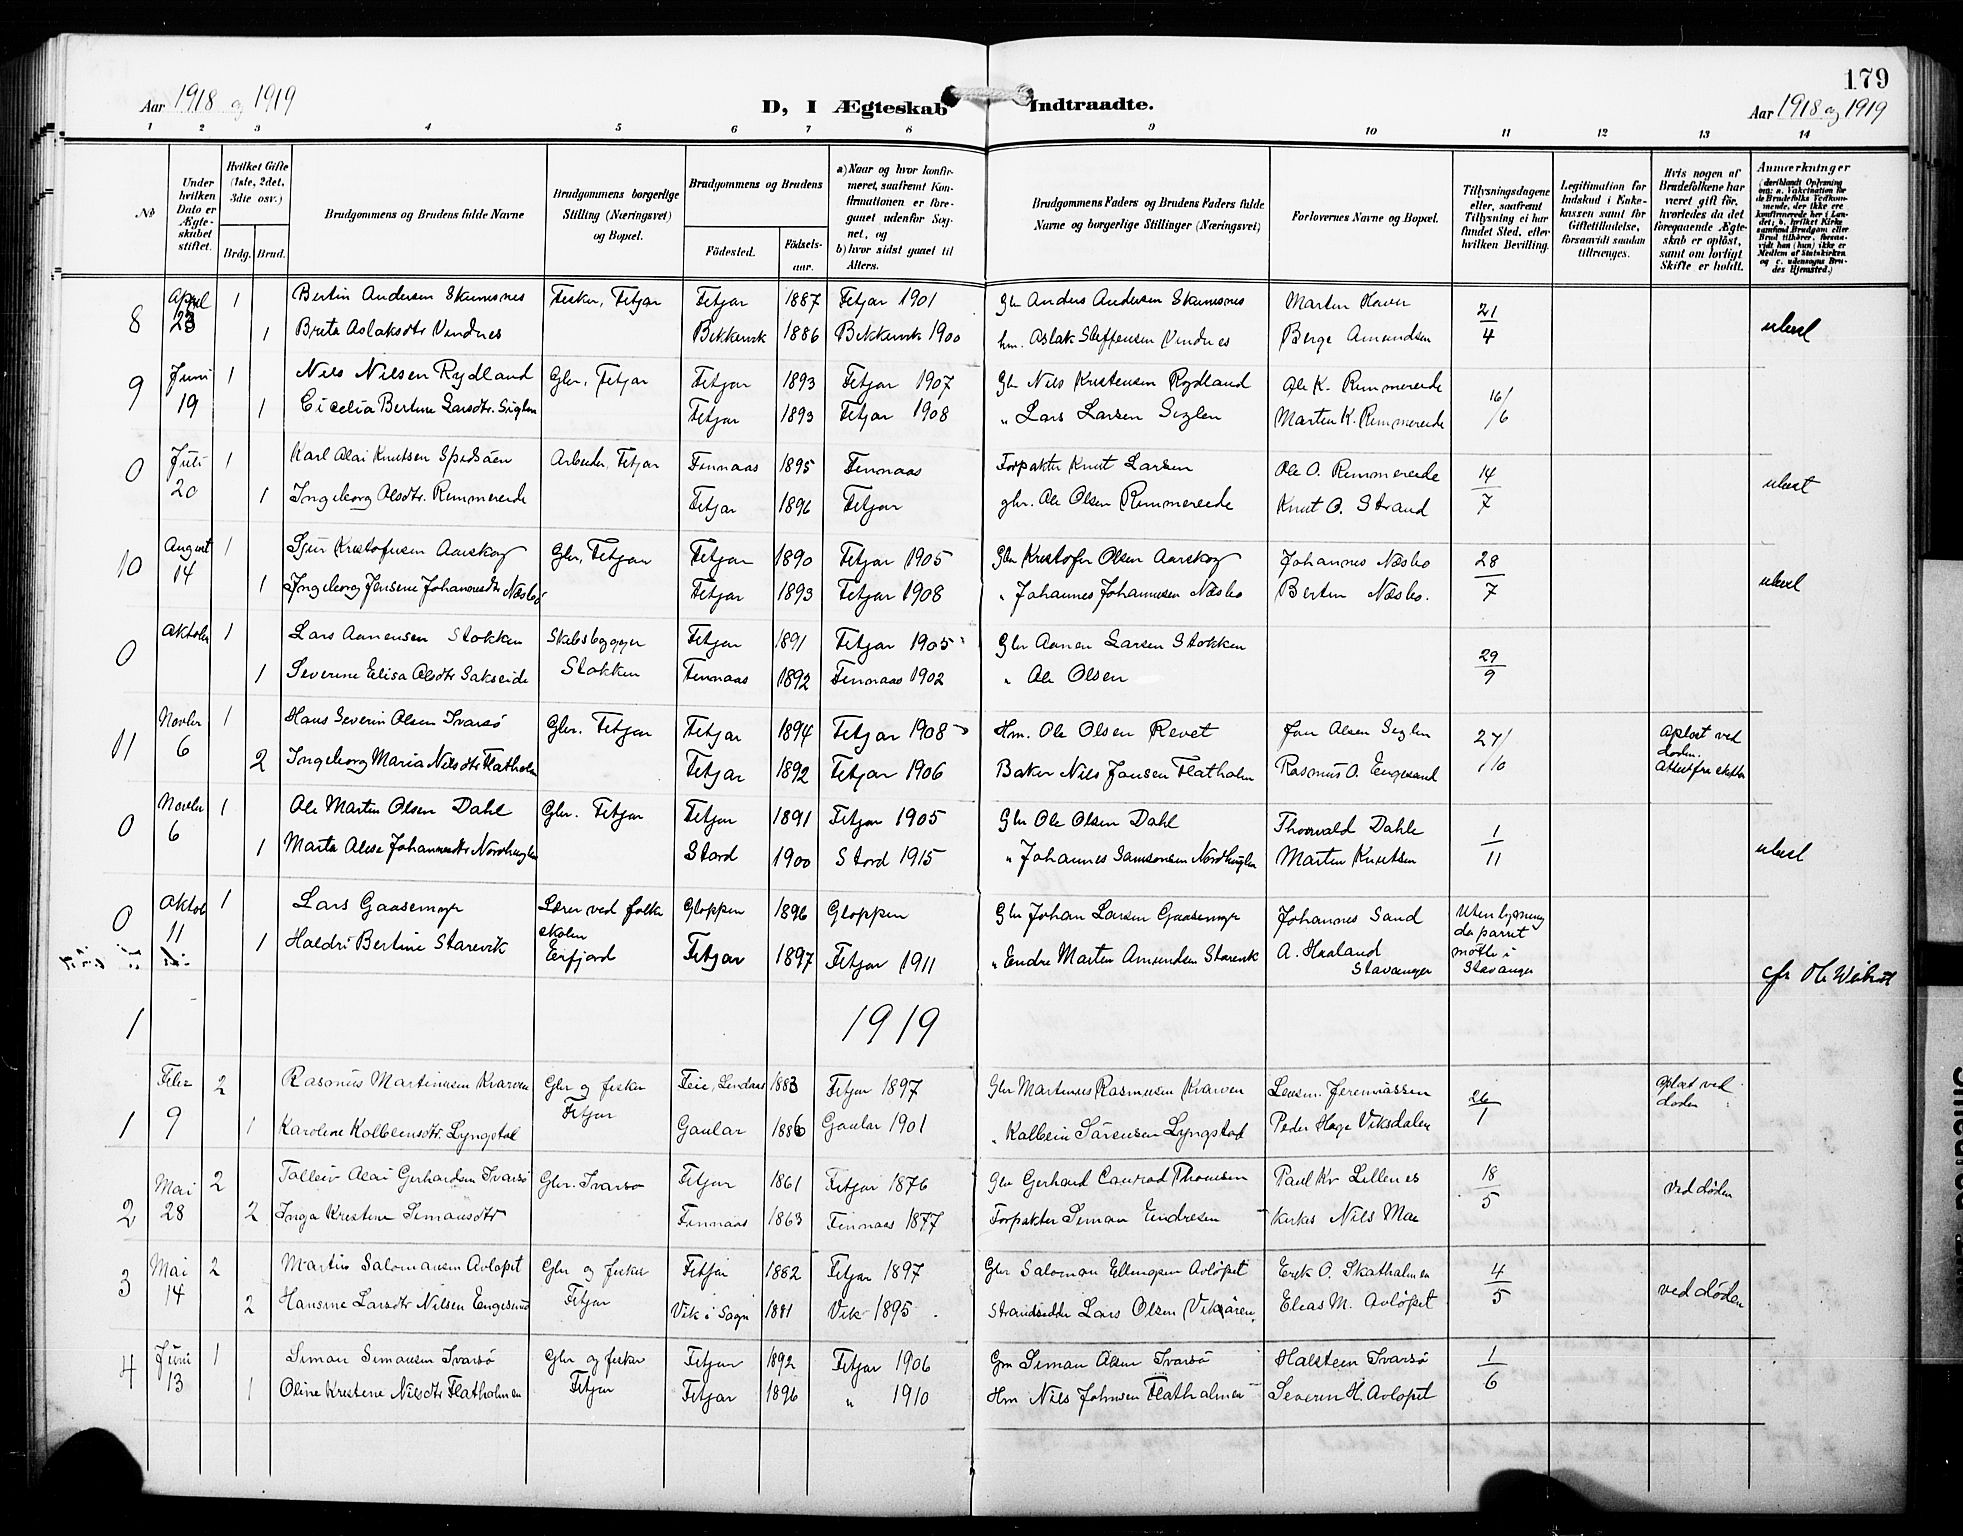 179
Aar 1918 og 1919
D, I Ægteskab Indtraadte.
Aar 1918 og 1919
1 2 3 4 5 6 7 8 9 10 11 12 13 14
No
Under hvilken Dato er Ægteskabet stiftet.
Hvilket Gifte (1ste, 2det, 3die osv.)
Brdg. Brud.
Brudgommens og Brudens fulde Navne
Brudgommens borgerlige Stilling (Næringsvei) og Bopæl.
Brudgommens og Brudens
Fødested. Fødselsaar.
a) Naar og hvor konfirmeret, saafremt Konfirmationen er foregaaet udenfor Sognet, og
b) hvor sidst gaaet til Alters.
Brudgommens Faders og Brudens Faders fulde Navne og borgerlige Stillinger (Næringsvei)
Forlovernes Navne og Bopæl.
Tillysningsdagene eller, saafremt Tillysning ei har fundet Sted, efter hvilken Bevilling.
Legitimation for Indskud i Enkekassen samt for Giftetilladelse, forsaavidt saadan tiltrænges.
Hvis nogen af Brudefolkene har været gift før, hvorledes da det foregaaende Ægteskab er opløst, samt om lovligt Skifte er holdt.
Anmærkninger
8 April 23 1 Bertin Andersen Skumsnes Fisker, Fitjar Fitjar 1887 Fitjar 1901 Gbr Anders Andersen Skumsnes Martin Hovin 21/4
1 Brita Aslaksdtr Vindnes Bekkervik 1886 Bekkervik 1900 hm. Aslak Steffensen Vindnes Berge Amundsen
9 Juni 19 1 Nils Nilsen Rydland Gbr, Fitjar Fitjar 1893 Fitjar 1907 Gbr Nils Kristensen Rydland Ole K. Rimmereide 16/6
1 Cicelia Bertine Larsdtr. Siglen Fitjar 1893 Fitjar 1908 " Lars Larsen Siglen Martin K. Rimmereide
0 Juli 20 1 Karl Olai Knutsen Spidsøen Arbeider, Fitjar Finnaas 1895 Finnaas Forpakter Knut Larsen Ole O. Rimmereide 14/7
1 Ingeborg Olsdtr. Rimmereide Fitjar 1896 Fitjar gbr. Ole Olsen Rimmereide Knut O. Strand
10 August 14 1 Sjur Kristofersen Aarskog Gbr, Fitjar Fitjar 1890 Fitjar 1905 Gbr Kristofer Olsen Aarskog Johannes Næsbø 28/7
1 Ingeborg Jensine Johannesdtr Næsbø Fitjar 1893 Fitjar 1908 " Johannes Johannesen Næsbø Bertin Næsbø.
0 Oktober 1 Lars Aamensen Stokken Skibsbygger Stokken Fitjar 1891 Fitjar 1905 Gbr Aamen Larsen Stokken 29/9
1 Severine Elisa Olsdtr Sakseide Finnaas 1892 Finnaas 1902 " Ole Olsen
11 Novbr 6 1 Hans Severin Olsen Ivarsø Gbr. Fitjar Fitjar 1894 Fitjar 1908 Hm. Ole Olsen Revet Jon Olsen Siglen 27/10 Opløst ved døden.
2 Ingeborg Maria Nilsdtr Flatholm Fitjar 1892 Fitjar 1906 Baker Nils Jansen Flatholm Rasmus O. Engesund Attest fra skifte
0 Novbr 6 1 Ole Martin Olsen Dahl Gbr. Fitjar Fitjar 1891 Fitjar 1905 Gbr Ole Olsen Dahl Thorvald Dahle 1/11
1 Marta Alise Johannesdtr Nordhuglen Stord 1900 Stord 1915 " Johannes Samsonsen Nordhuglen Martin Knutsen
0 Oktob 11 1 Lars Gaasemyr Lærer ved folkeskolen Eifjord Gloppen 1896 Gloppen Gbr Johan Larsen Gaasemyr Johannes Sand Uten lysning da parret møtte i Stavanger
1 Haldri Bertine Starevik Fitjar 1897 Fitjar 1911 " Endre Martin Amundsen Starevik A. Haaland Stavanger
1 1919
1 Febr 9 2 Rasmus Martinusen Kvarven Gbr og fisker Fitjar Feie, Lindaas 1883 Fitjar 1897 Gbr Martinus Rasmusen Kvarven Lensm. Jeremiassen 26/1 opløst ved døden
1 Karoline Kolbeinsdtr. Lyngstad Gaular 1886 Gaular 1901 " Kolbein Sørensen Lyngstad Peder Hage Viksdalen
2 Mai 28 2 Tolleiv Olai Gerhardsen Ivarsø Gbr. Ivarsø Fitjar 1861 Fitjar 1876 Gbr Gerhard Conrad Thomsen Paul Kr Lillenes 18/5 ved døden
2 Inga Kristine Simonsdtr Finnaas 1863 Finnaas 1877 Forpakter Simon Endresen Kirkes Nils Moe
3 Mai 14 2 Martin Salomonsen Avløpet Gbr og fisker Fitjar Fitjar 1882 Fitjar 1897 Gbr Salomon Ellingsen Avløpet Erik O. Skatholmen 4/5 ved døden
2 Hansine Larsdtr Nilsen Engesund Vik i Sogn 1881 Vik 1895 Strandsidder Lars Olsen (Vikøren) Elias M. Avløpet
4 Juni 13 1 Simon Simonsen Ivarsø Gbr og fisker Fitjar Fitjar 1892 Fitjar 1906 Gm Simon Olsen Ivarsø Halstein Ivarsø 1/6
1 Oline Kristine Nilsdtr Flatholmen Fitjar 1896 " 1910 Hm Nils Johnsen Flatholmen Severin H. Avløpet